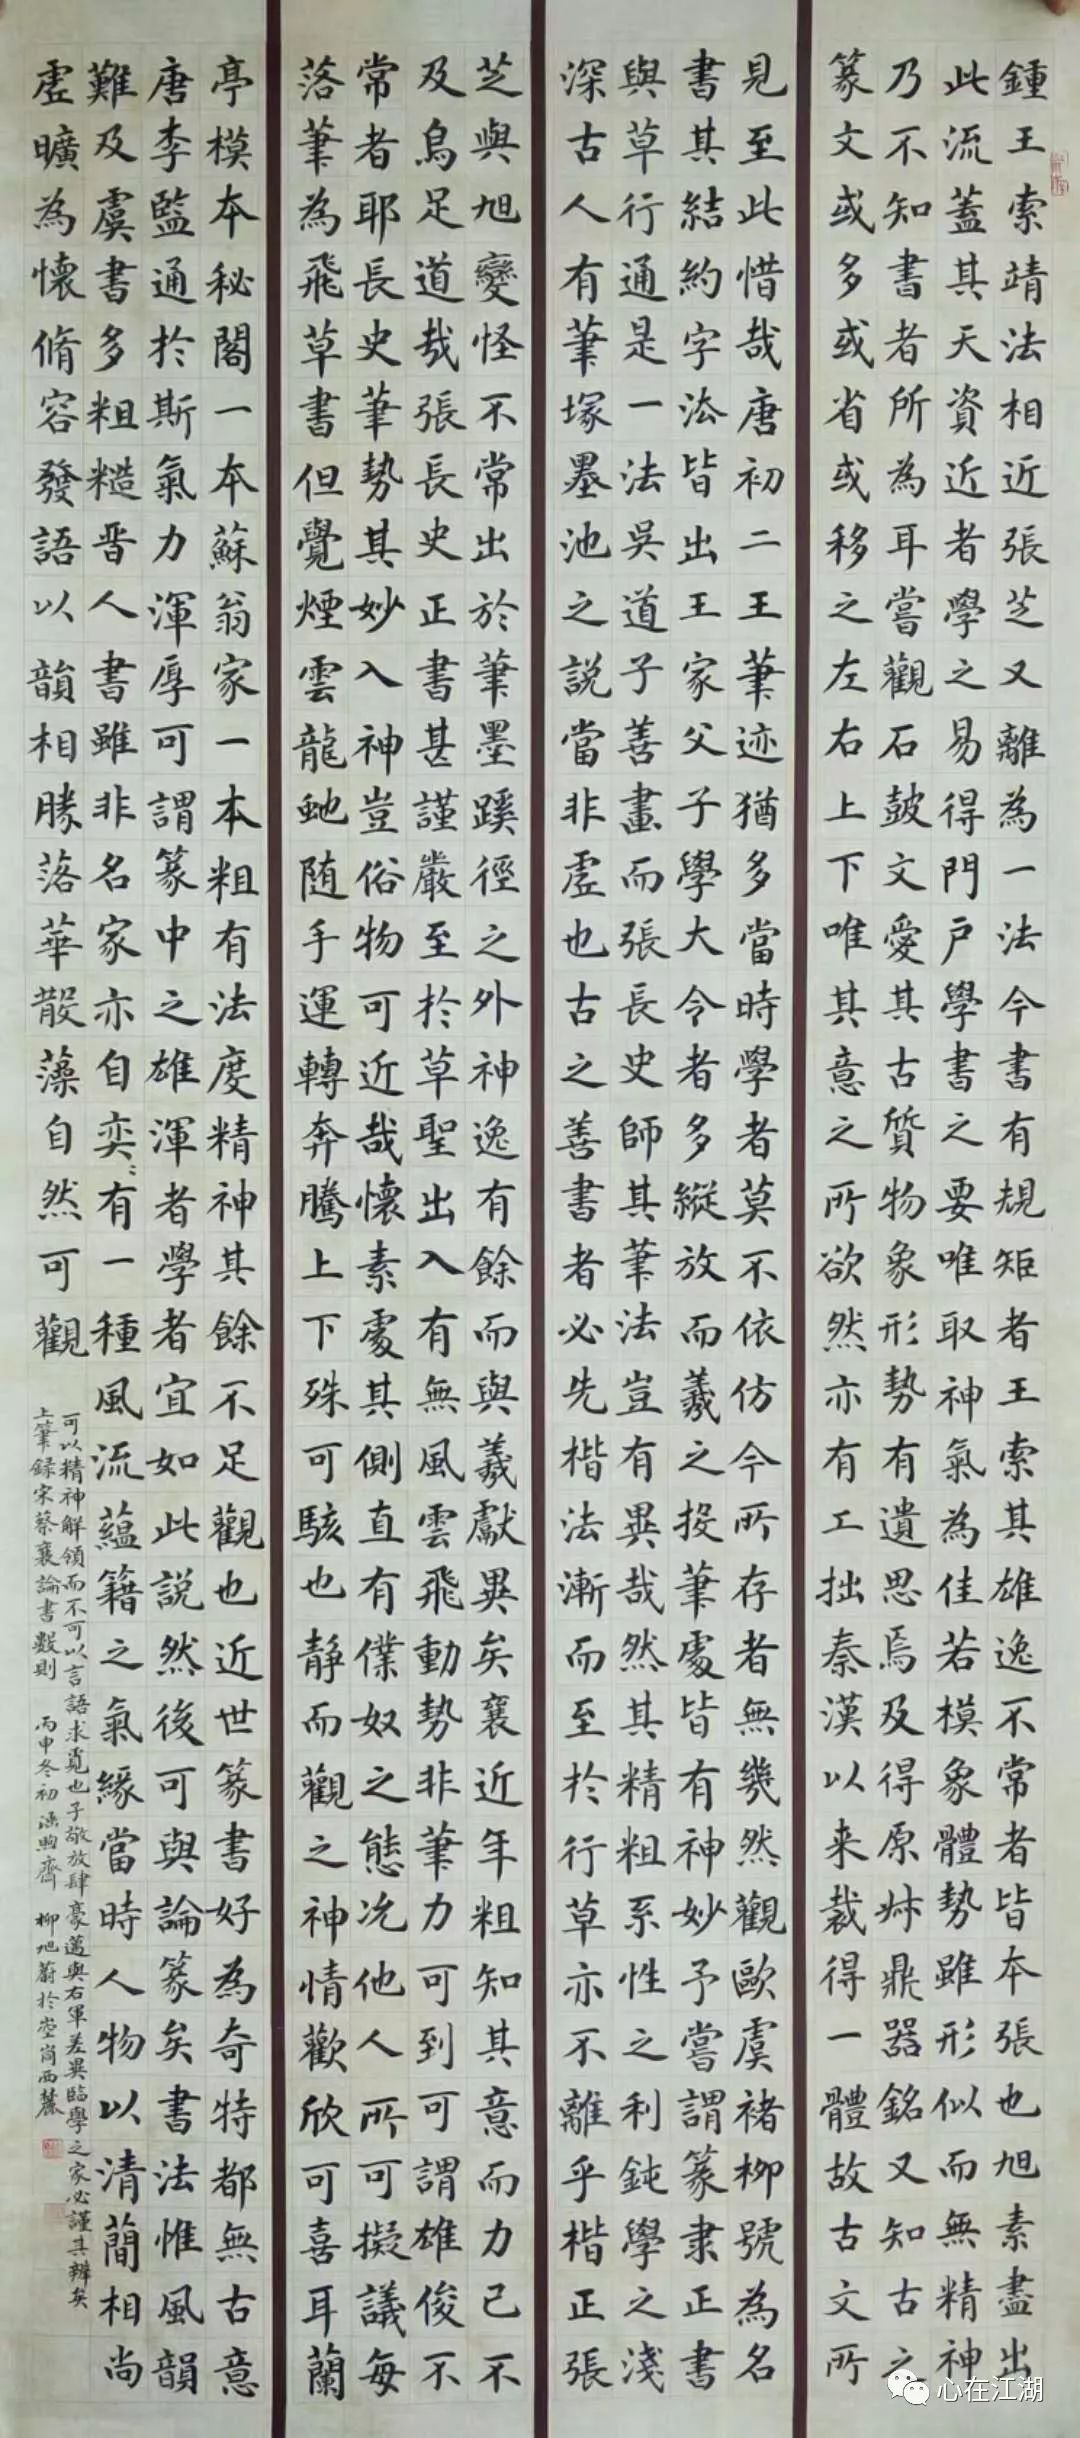 鍾王索靖法相近張芝又離為一法今書有規矩者王索其雄逸不常者皆本張也旭素盡出
此流蓋其天資近者學之易得門戶學書之要唯取神氣為佳若模象體勢雖形似而無精神
乃不知書者所為耳嘗觀石鼓文愛其古質物象形勢有遺思焉及得原叔鼎器銘又知古之
篆文或多或省或移之左右上下唯其意之所欲然亦有工拙秦漢以来裁得一體故古文所
見至此惜哉唐初二王筆迹猶多當時學者莫不依仿今所存者無幾然觀歐虞褚柳號為名
書其結約字法皆出王家父子學大令者多縱放而羲之投筆處皆有神妙予嘗謂篆隸正書
與草行通是一法吳道子善畫而張長史師其筆法豈有異哉然其精粗系性之利鈍學之淺
深古人有筆塚墨池之説當非虛也古之善書者必先楷法漸而至於行草亦不離乎楷正張
芝與旭變怪不常出於筆墨蹊徑之外神逸有餘而與羲獻異矣襄近年粗知其意而力已不
及烏足道哉張長史正書甚謹嚴至於草聖出入有無風雲飛動勢非筆力可到可謂雄俊不
常者耶長史筆勢其妙入神豈俗物可近哉懷素處其側直有僕奴之態况他人所可擬議每
落筆為飛草書但覺煙雲龍虵随手運轉奔騰上下殊可駭也静而觀之神情歡欣可喜耳蘭
亭模本秘閣一本蘇翁家一本粗有法度精神其餘不足觀也近世篆書好為奇特都無古意
唐李監通於斯氣力渾厚可謂篆中之雄渾者學者宜如此説然後可與論篆矣書法惟風韻
難及虞書多粗糙晋人書雖非名家亦自奕〻有一種風流蘊籍之氣緣當時人物以清簡相尚
虛曠為懷脩容發語以韻相勝落華散藻自然可觀
可以精神解領而不可以言語求覓也子敬放肆豪邁與右軍差異臨學之家必謹其辨矣
上筆録宋蔡襄論書數則 丙申冬初 齋 柳旭蔚於 崗西麓
心在江湖